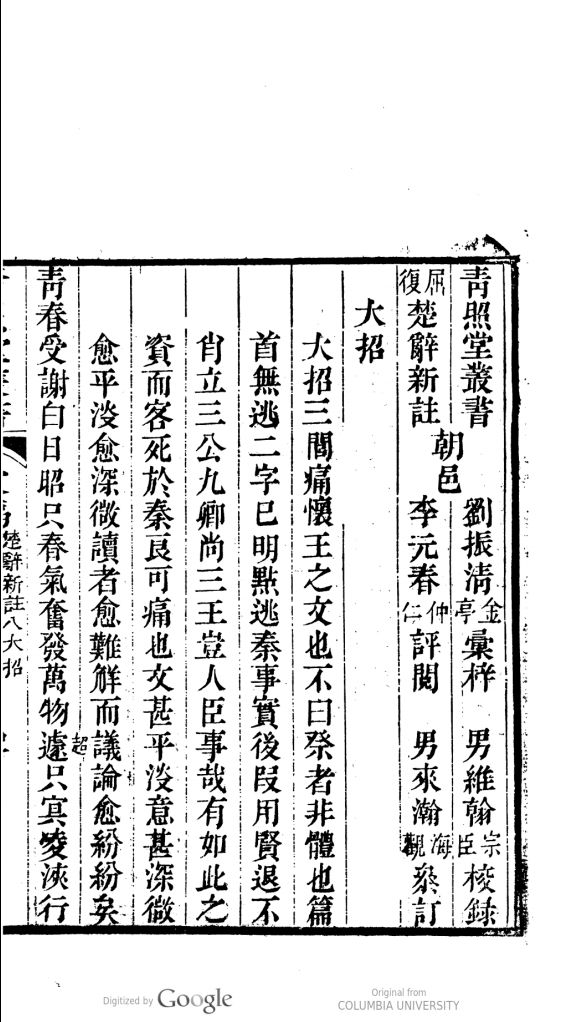 青照堂叢書 朝邑 劉振清 金亭 彙梓 男維翰 宗臣 校錄
屈復楚辭新註 李元春 仲仁 評閱 男來瀚 海觀 叅訂
大招
大招三閭痛懷王之文也不曰祭者非體也篇
首無逃二字已明點逃秦事實後叚用賢退不
肖立三公九卿尚三王豈人臣事哉有如此之
資而客死於秦良可痛也文甚平淡意甚深微
愈平淡愈深微讀者愈難解而議論愈紛紛矣
青春受謝白日昭只春氣奮發萬物遽只㝠凌浹行
超
楚辭新註八大招
Digitized by Google
Original from
COLUMBIA UNIVERSITY